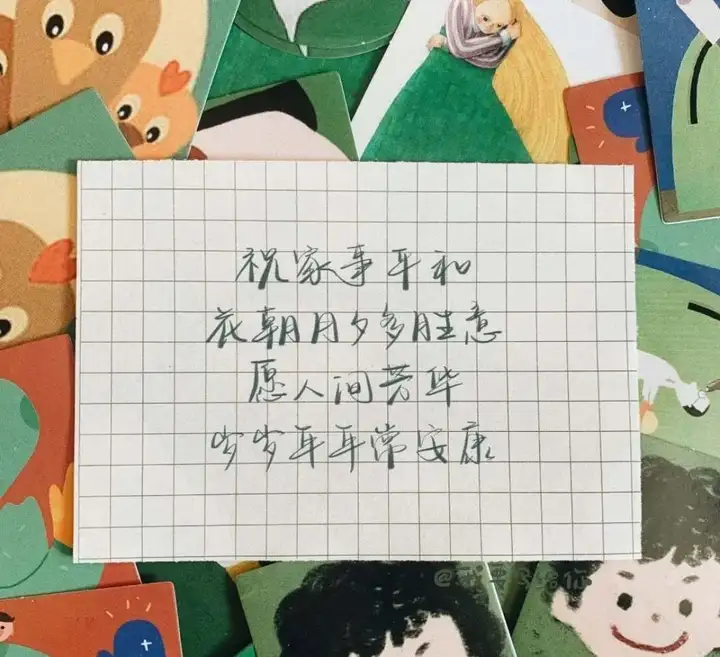 祝家事平和
花朝月夕多胜意
愿人间芳华
岁岁年年常安康